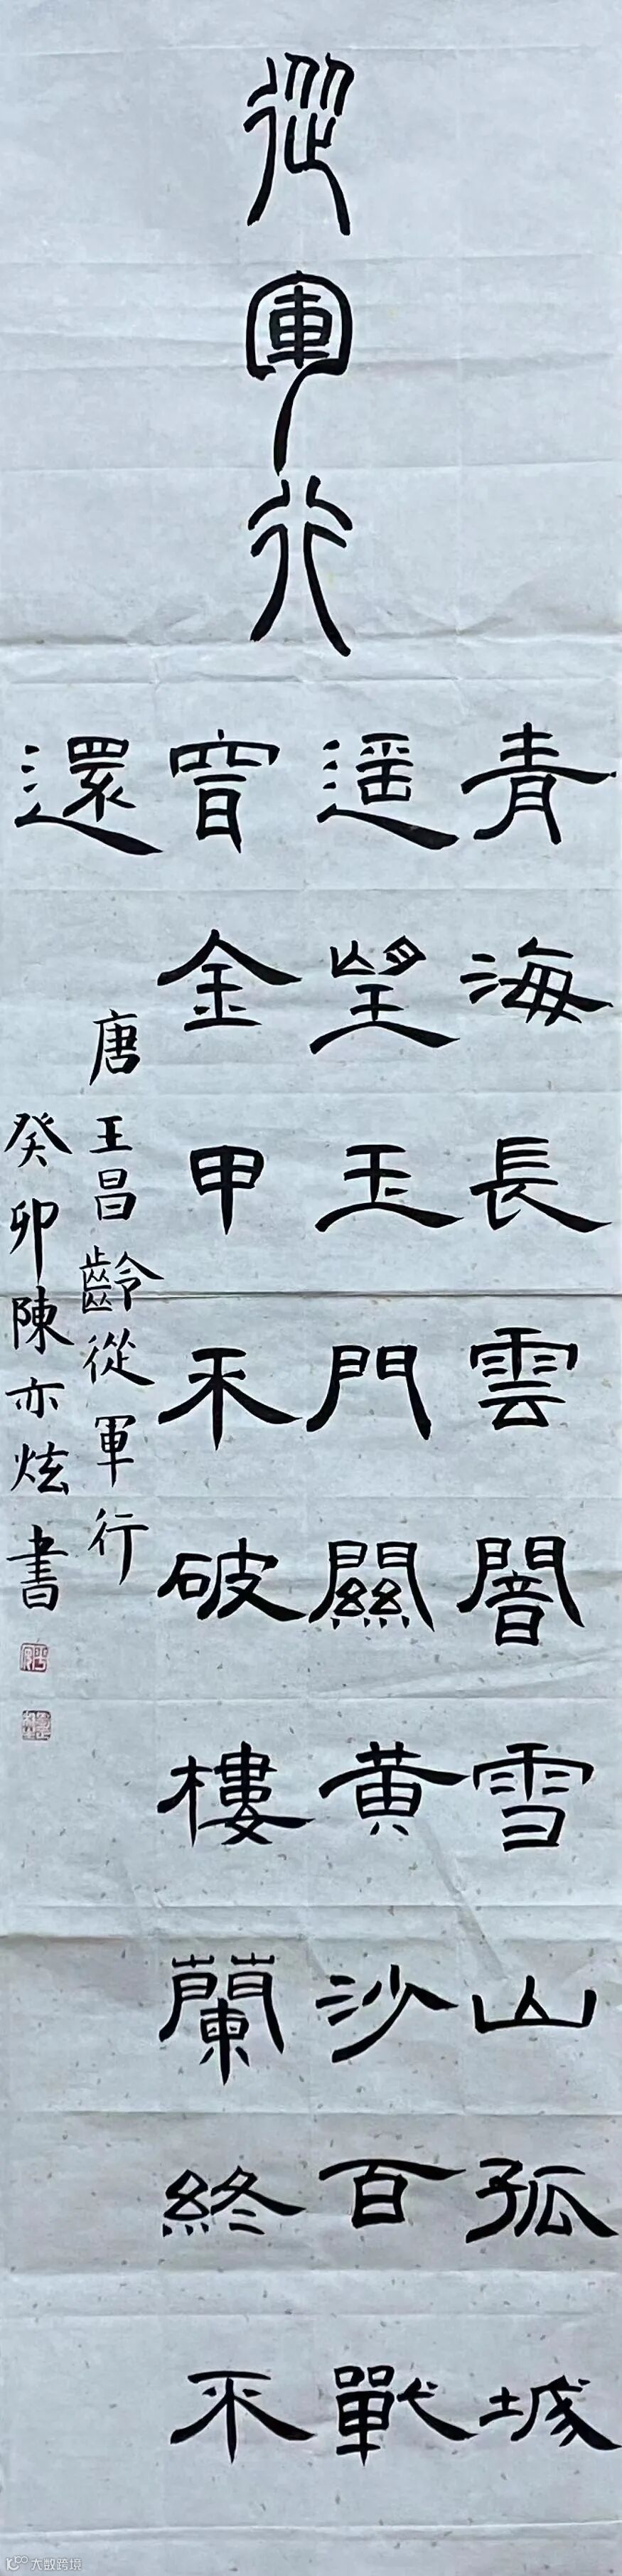 從軍行
青海長雲闇雪山孤城
遥望玉門關黄沙百戰
穿金甲不破樓蘭終不
還
唐王昌齡從軍行
癸卯陳亦炫書
大数跨境